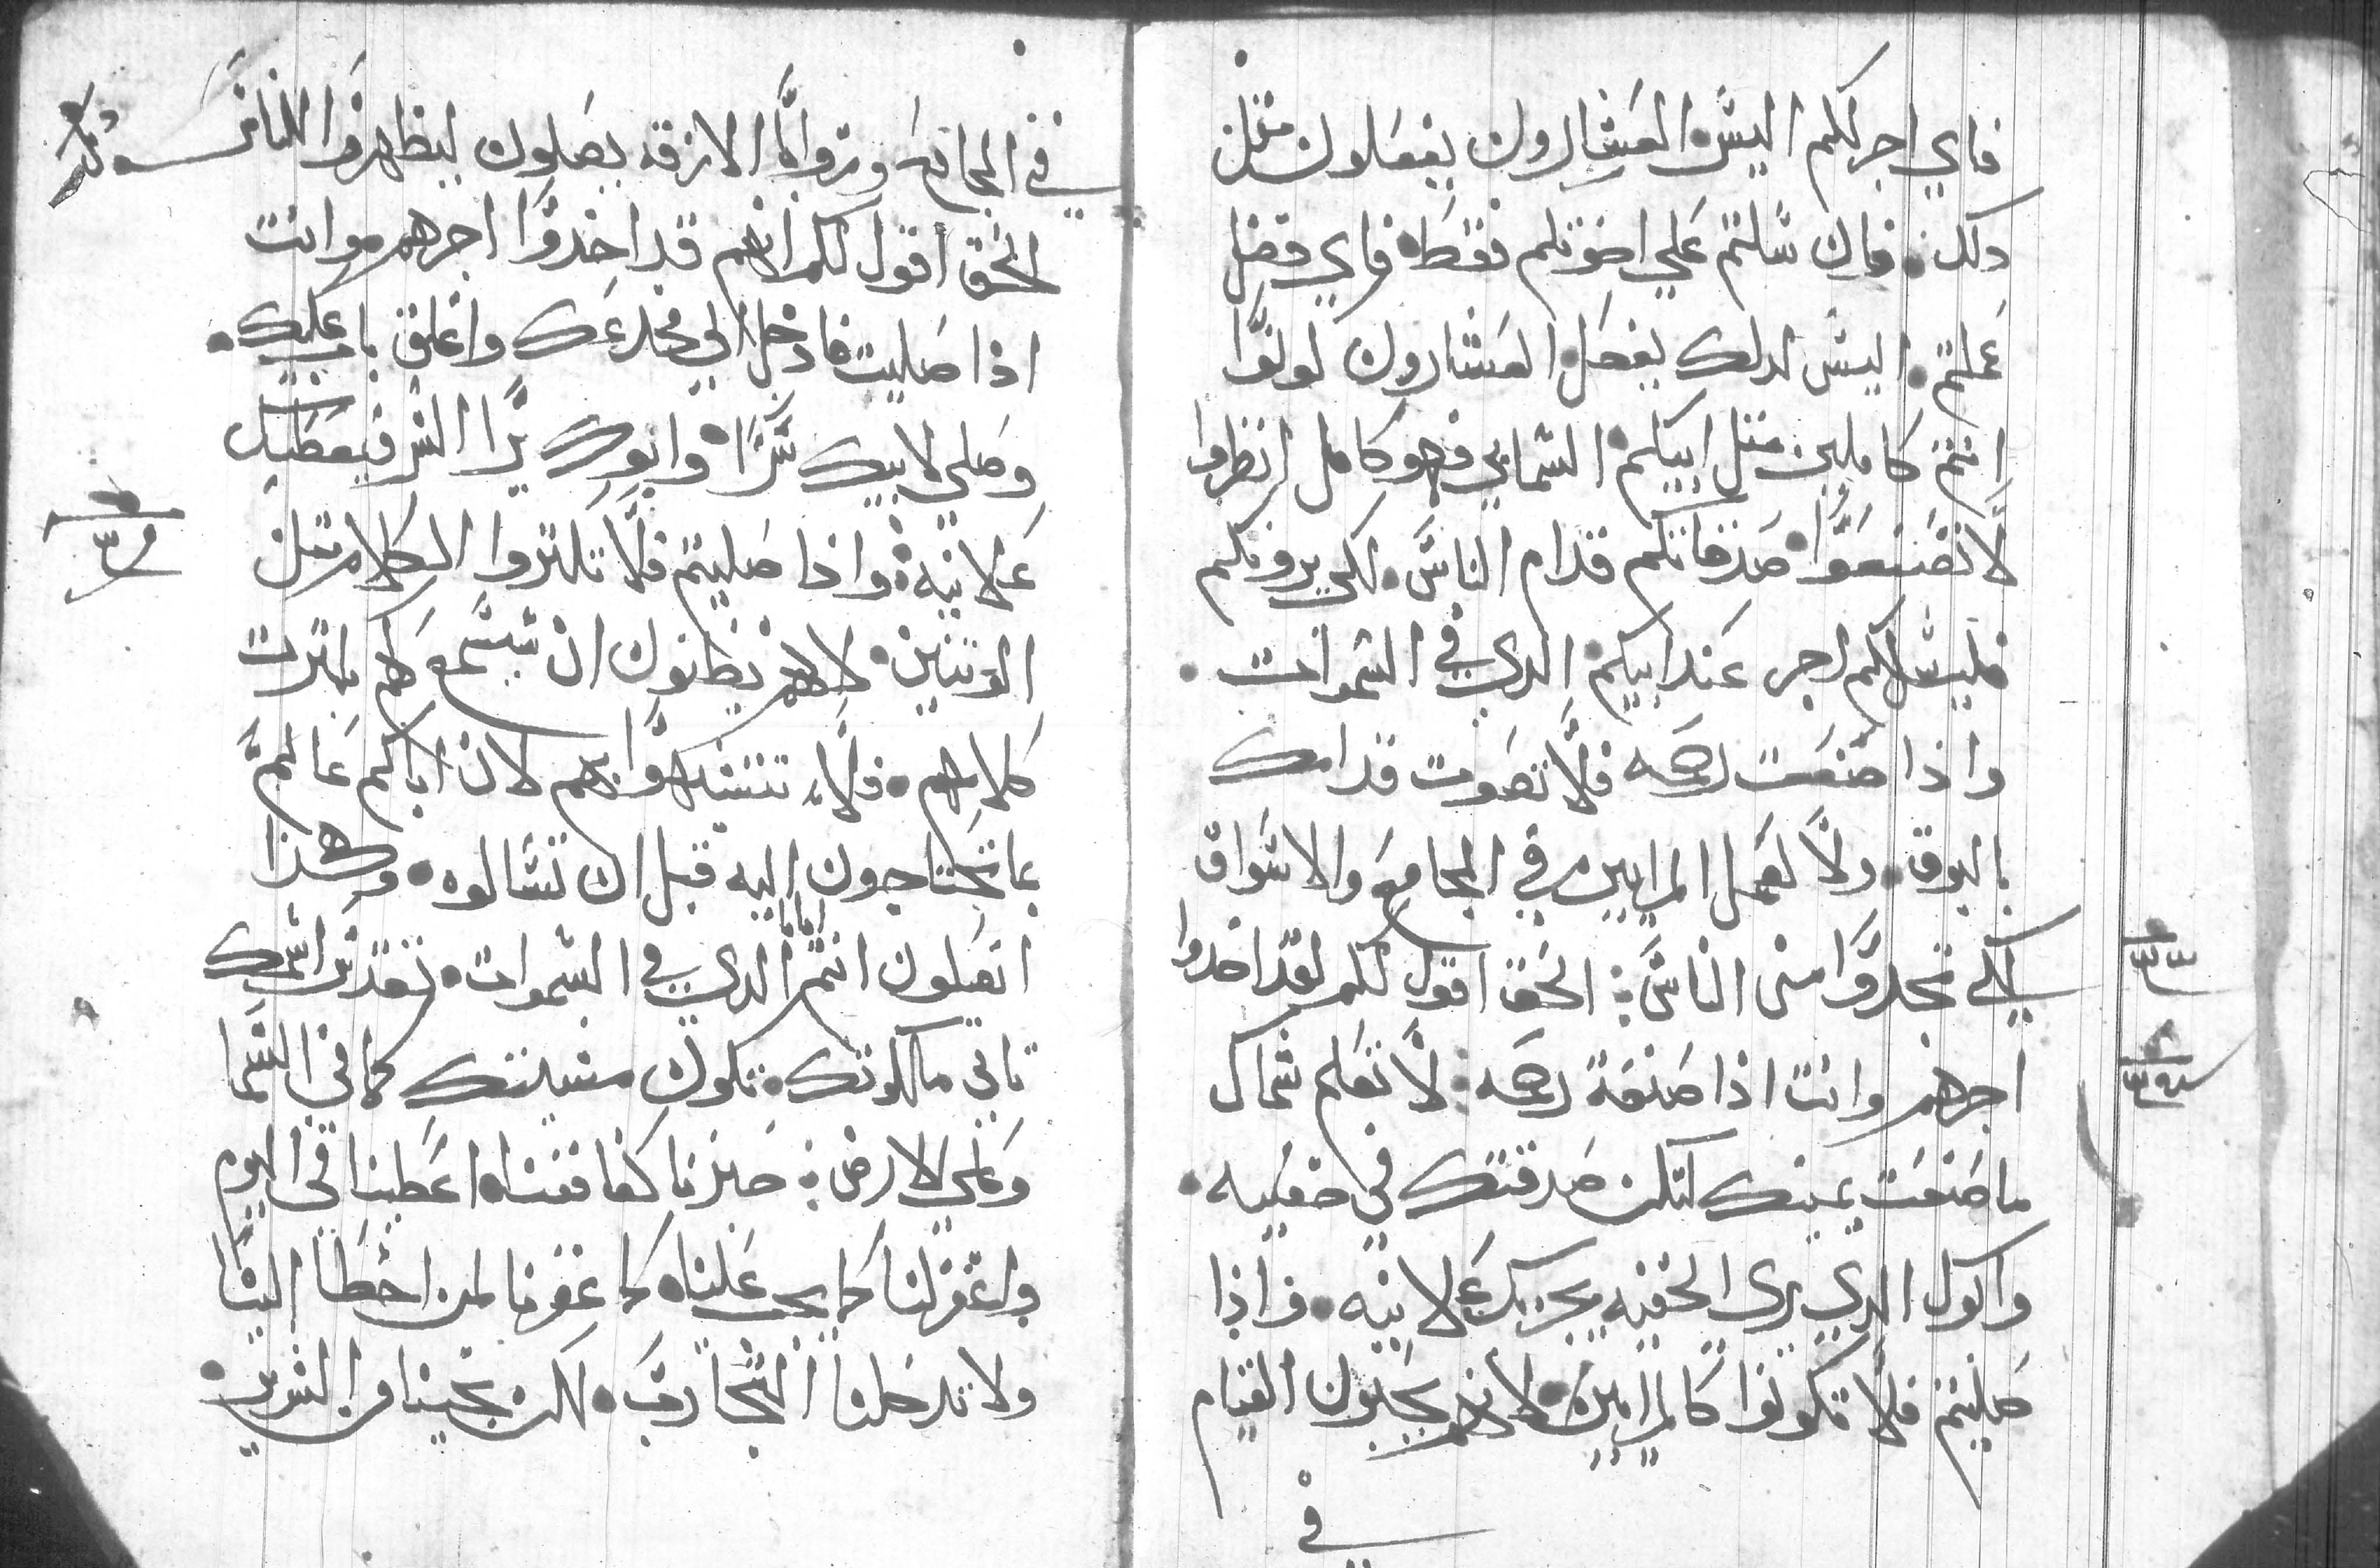 فاي اجر لكم اليس العشارون يفعلون مثل
دلك فان سلمتم علي اخوتكم فقط فاي فضل
عملتم اليس كدلك يفعل العشارون كونوا
انتم كاملين مثل ابيكم السمايي فهو كامل انظروا
لا تصنعوا صدقاتكم قدام الناس لكي يرونكم
فليس لكم اجر عند ابيكم الدي في السموات
واذا صنعت رحمه فلا تصوت قدامك
بالبوق ولا كعمل المرايين في المجامع والاسواق
لكي تمجدوا من الناس الحق اقول لكم لقد اخدوا
اجرهم وانت اذا صنعة رحمه لا تعلم شمال
ما صنعت يمينك لتكن صدقتك في خفيه
وابوك الدي يري الخفيه يجزيك علانيه فاذا
صليتم فلا تكونوا كالمرايين لانهم يحبون القيام
في
في المجامع وزوايا الازقه يصلون ليظهروا للناس
الحق اقول لكم انهم قد اخدوا اجرهم وانت
اذا صليت فادخل الي مخدعك واغلق بابك عليك
وصلي لابيك سرا وابوك يرا السر فيعطيك
علانيه واذا صليتم فلا تكتروا الكلام متل
الوتنين لانهم يظنون ان يسمع لهم بكترت
كلامهم فلا تتشبهوا بهم لان اباكم عالم
بما تحتاجون اليه قبل ان تسالوه وهكذا
اتصلون انتم ابانا الدي في السموات تقدس اسمك
تاتي ملكوتك تكون مشيتك كما في السما
وعلي الارض خبزنا كفافنا اعطينا في اليوم
واغفر لنا كما يجب علينا كما غفرنا لمن اخطا الينا
ولا تدخلنا التجارب لكن نجينا من الشرير